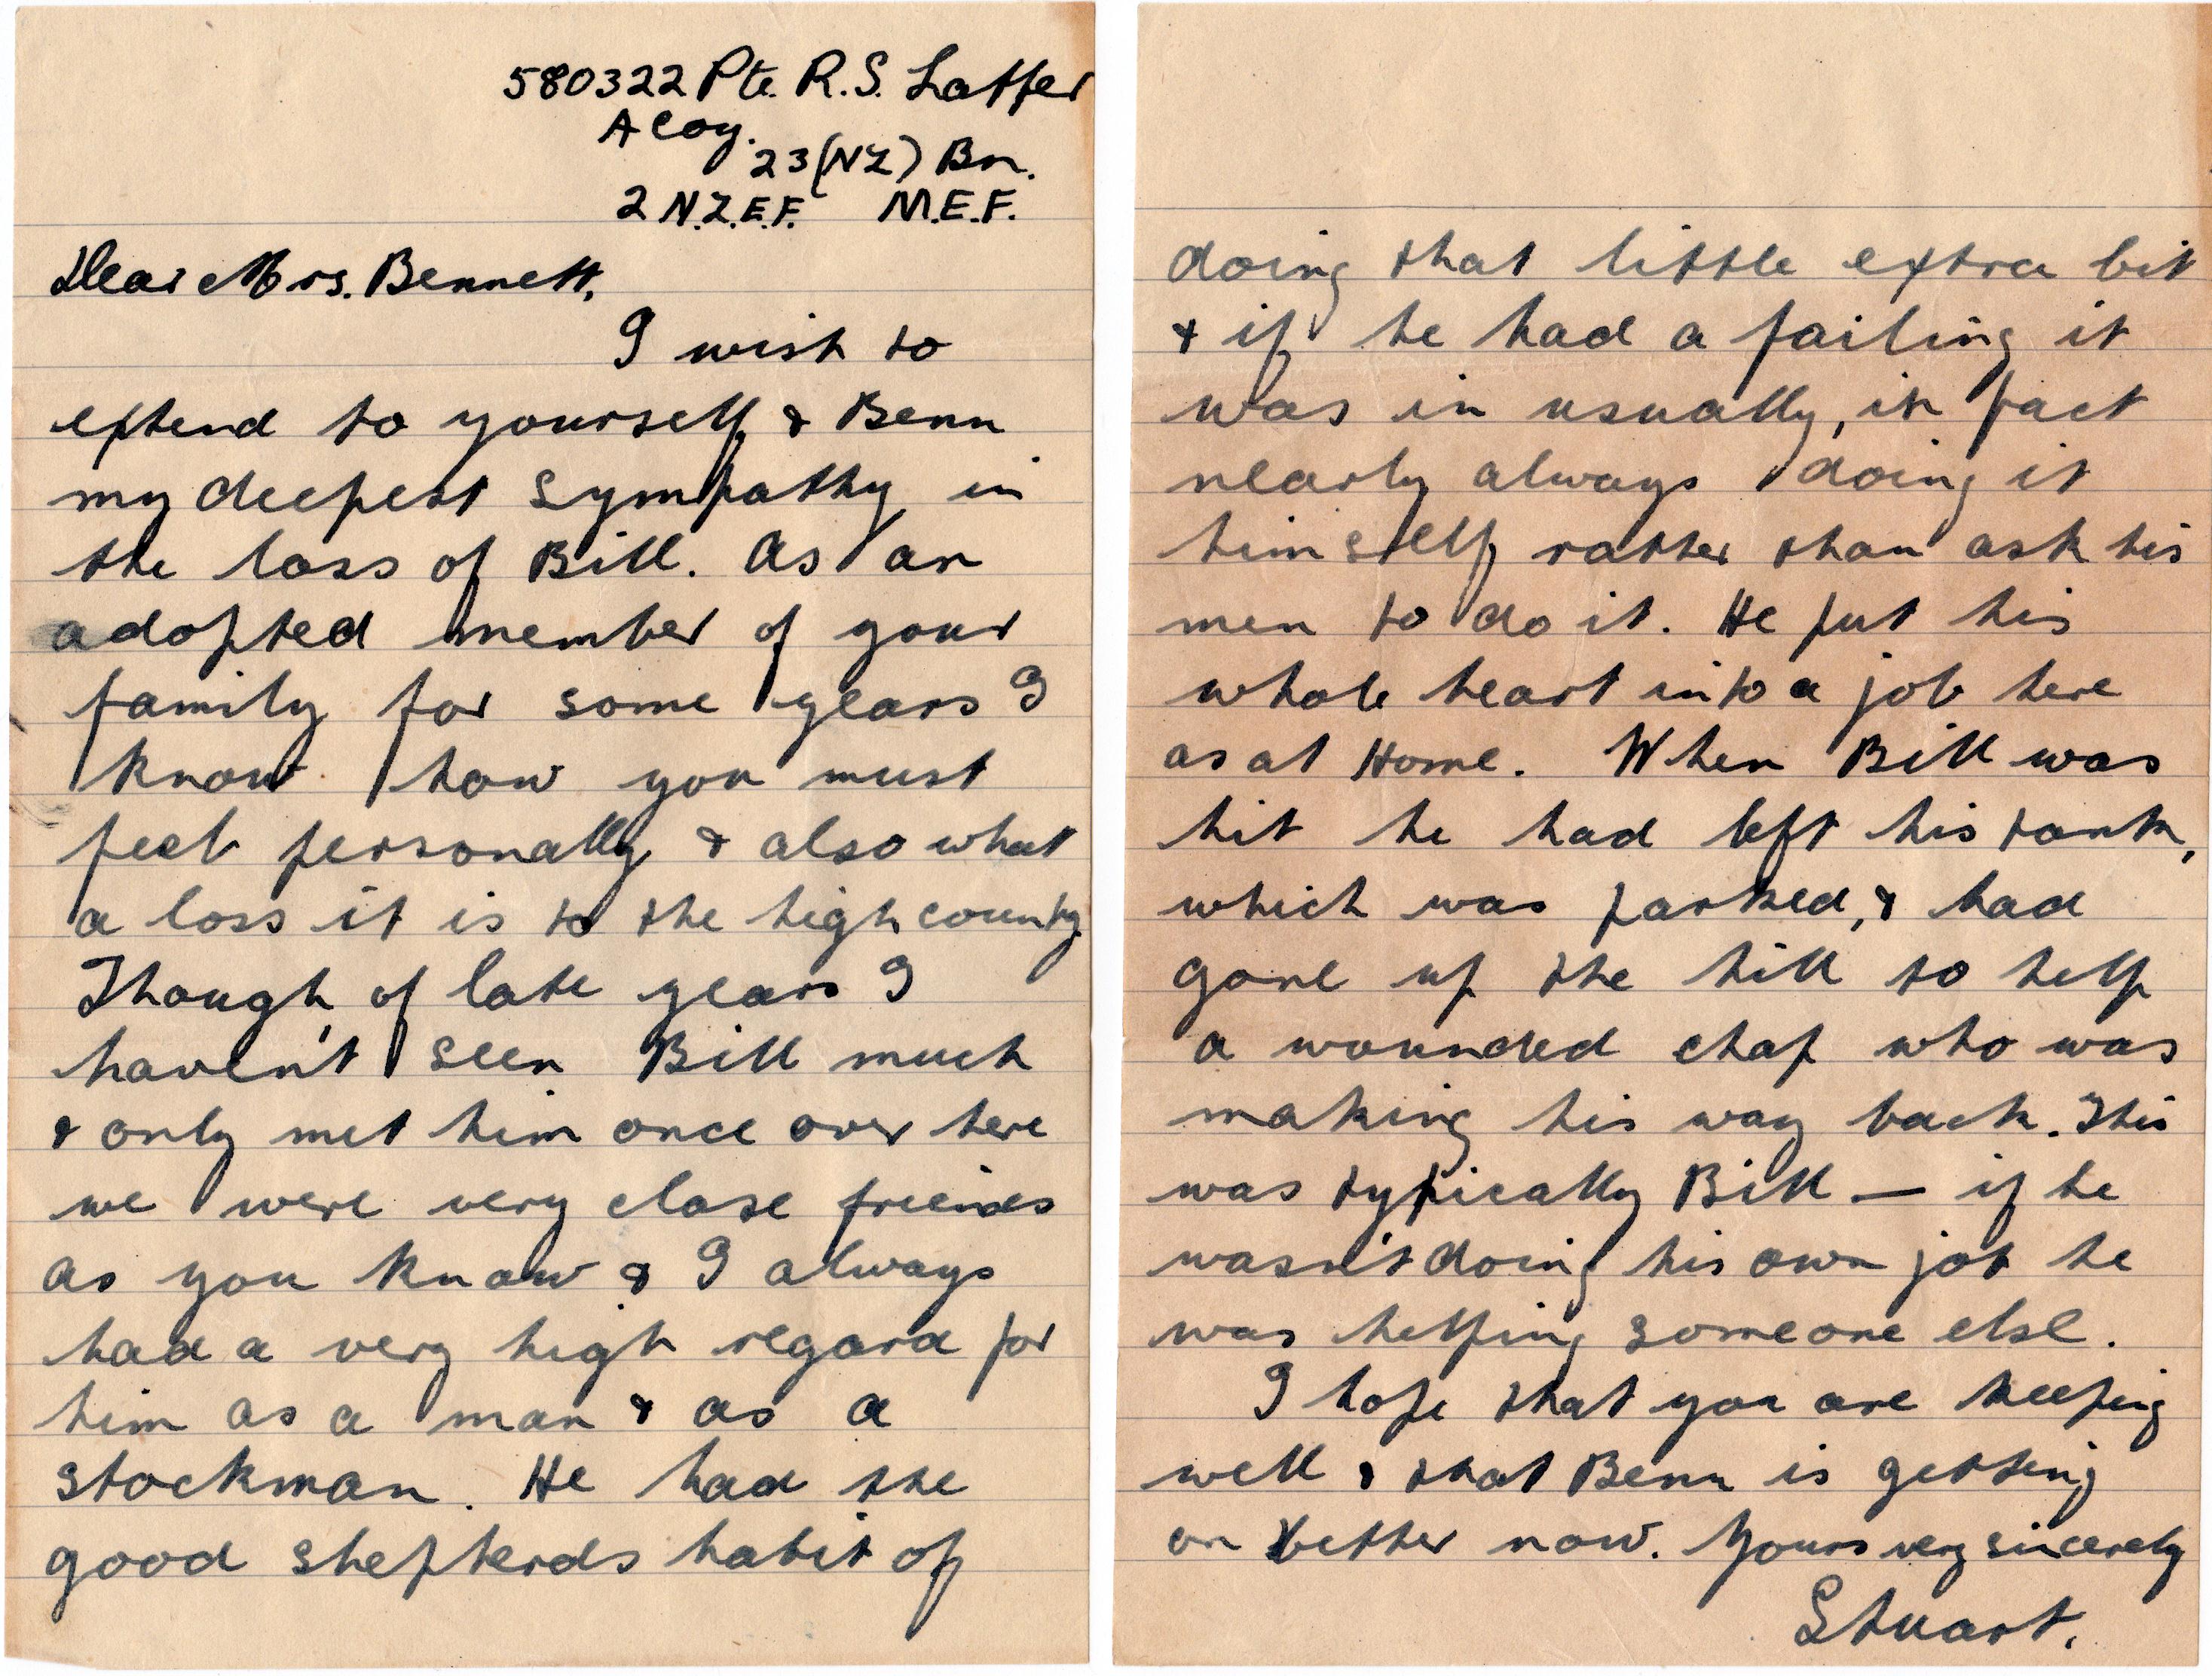 580322 Pte. R.S. Latter
A Coy.
23 (NZ) Bn.
2 N.Z.E.F. M.E.F.
Dear Mrs. Bennett,
I wish to
extend to yourself & Benn
my deepest sympathy in
the loss of Bill. As an
adopted member of your
family for some years I
know how you must
feel personally & also what
a loss it is to the high county
Though of late years I
haven't seen Bill much
& only met him once over here
we were very close friends
as you know & I always
had a very high regard for
him as a man & as a
stockman. He had the
good shepherds habit of
doing that little extra bit
& if he had a failing it
was in usually, in fact
nearly always doing it
himself rather than ask his
men to do it. He put his
whole heart into a job here
as at Home. When Bill was
hit he had left his tank,
which was parked, & had
gone up the hill to help
a wounded chap who was
making his way back. This
was typically Bill — if he
wasn't doing his own job he
was helping someone else.
I hope that you are keeping
well & that Benn is getting
on better now. Yours very sincerely
Stuart.